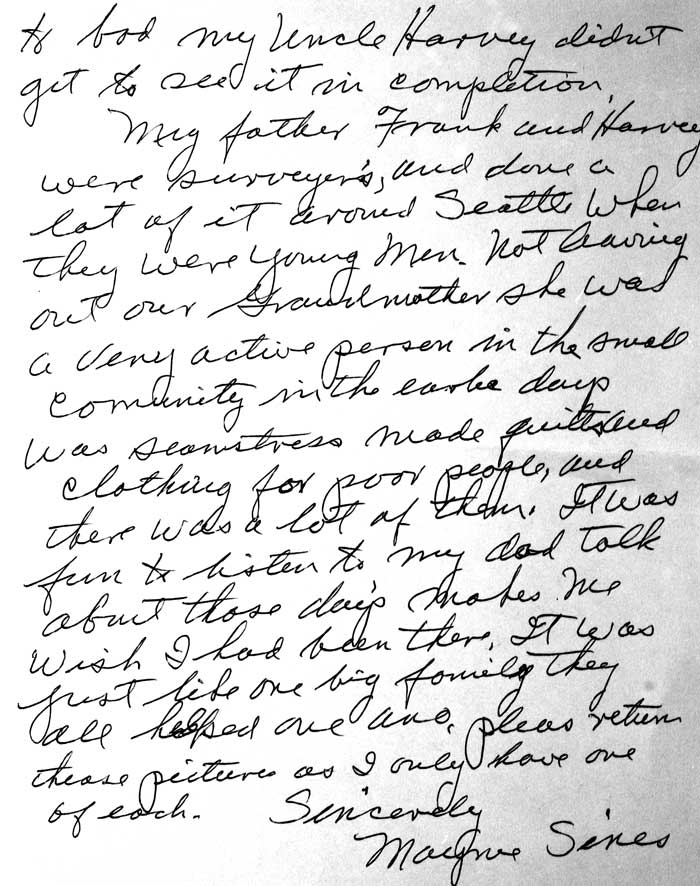 to bad my Uncle Harvey didn't
get to see it in completion.
My father Frank and Harvey
were surveyer's, and done a
lot of it around Seattle when
they were young men. Not leaving
out our Grandmother she was
a very active person in the small
comunity in the earlie days
was seamstress made quilts and
clothing for poor people, and
there was a lot of them. It was
fun to listen to my dad talk
about those days makes me
wish I had been there. It was
just like one big family they
all helped one ano. pleas return
these pictures as I only have one
of each. Sincerely
Sines